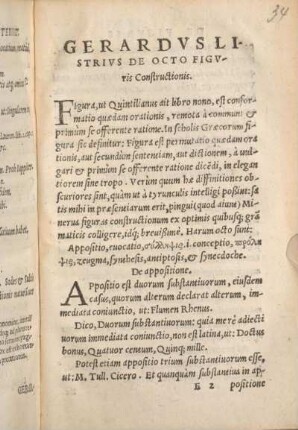 34
GERARDVS LI-
STRIVS DE OCTO FIGV-
ris Constructionis.
Figura, ut Quintilianus ait libro nono, est confor-
matio quædam orationis, remota à communi &
primùm se offerente ratione. In scholis Græcorum fi-
gura sic definitur: Figura est permutatio quædam orati-
onis, aut secundum sententiam, aut dictionem, à uul-
gari & primùm se offerente ratione dicēdi, in elegan
tiorem sine tropo. Verùm quum hæ diffinitiones ob-
scuriores sint, quàm ut à tyrunculis intelligi possint: sa
tis mihi in præsentiarum erit, pingui (quod aiunt) Mi-
nerua figuras constructionum ex optimis quibusq; grā
maticis colligere, idq; breuißimè. Harum octo sunt:
Appositio, euocatio, σύλληψις .i. conceptio, πρόλη
ψις, zeugma, synthesis, antiptosis, & synecdoche.
De appositione.
Appositio est duorum substantiuorum, eiusdem
casus, quorum alterum declarat alterum, im-
mediata coniunctio, ut: Flumen Rhenus.
Dico, Duorum substantiuorum: quia merè adiecti
uorum immediata coniunctio, non est latina, ut: Doctus
bonus, Quatuor centum, Quinq; mille.
Potest etiam appositio trium substantiuorum esse,
ut: M. Tull. Cicero. Et quanquàm substantiua in ap-
E 2 positione